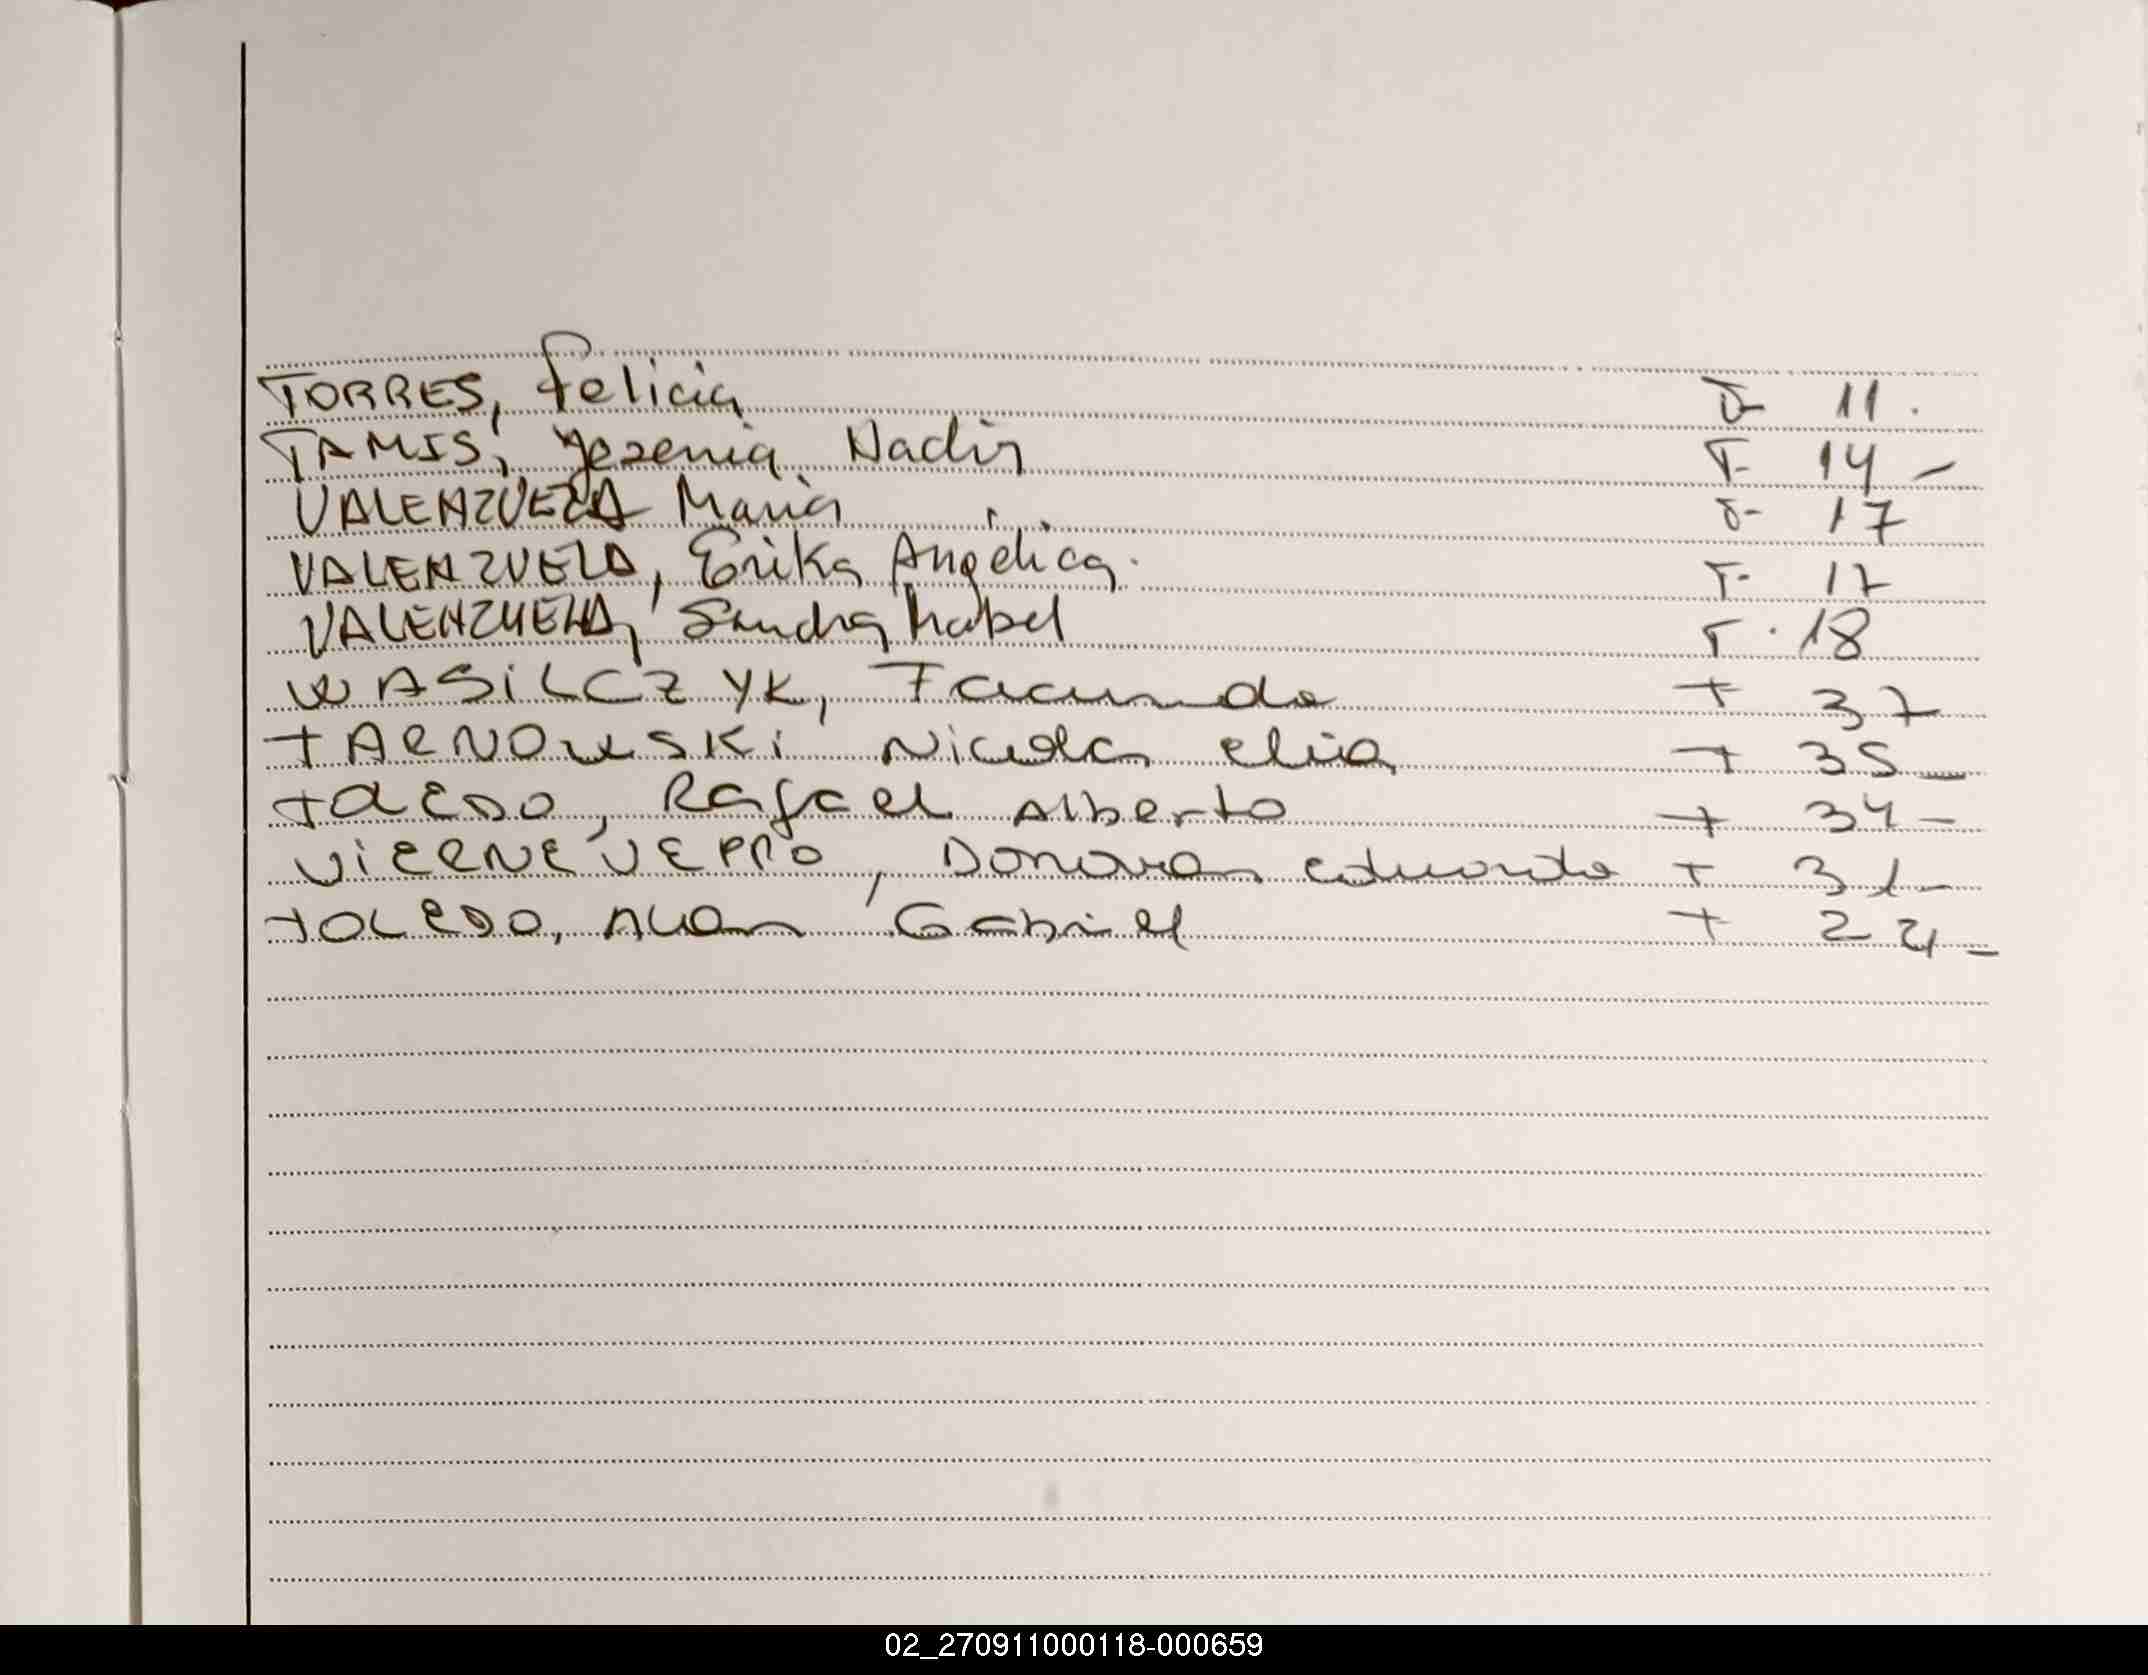 TORRES, Felicia T- 11.
TAMIS, Yesenia Nadir T- 14-
VALENZUELA Maria T- 17
VALENZUELA, Erika Angélica. T- 17
VALENZUELA, Sandra Mabel T. 18
WASILCZYK, Facundo T 37
TARNOWSKI Nicolas elias T 35-
TOLEDO, Rafael Alberto T 34-
Donovan eduardo T 31-
TOLEDO, Alan Gabriel T 24-
02_270911000118-000659